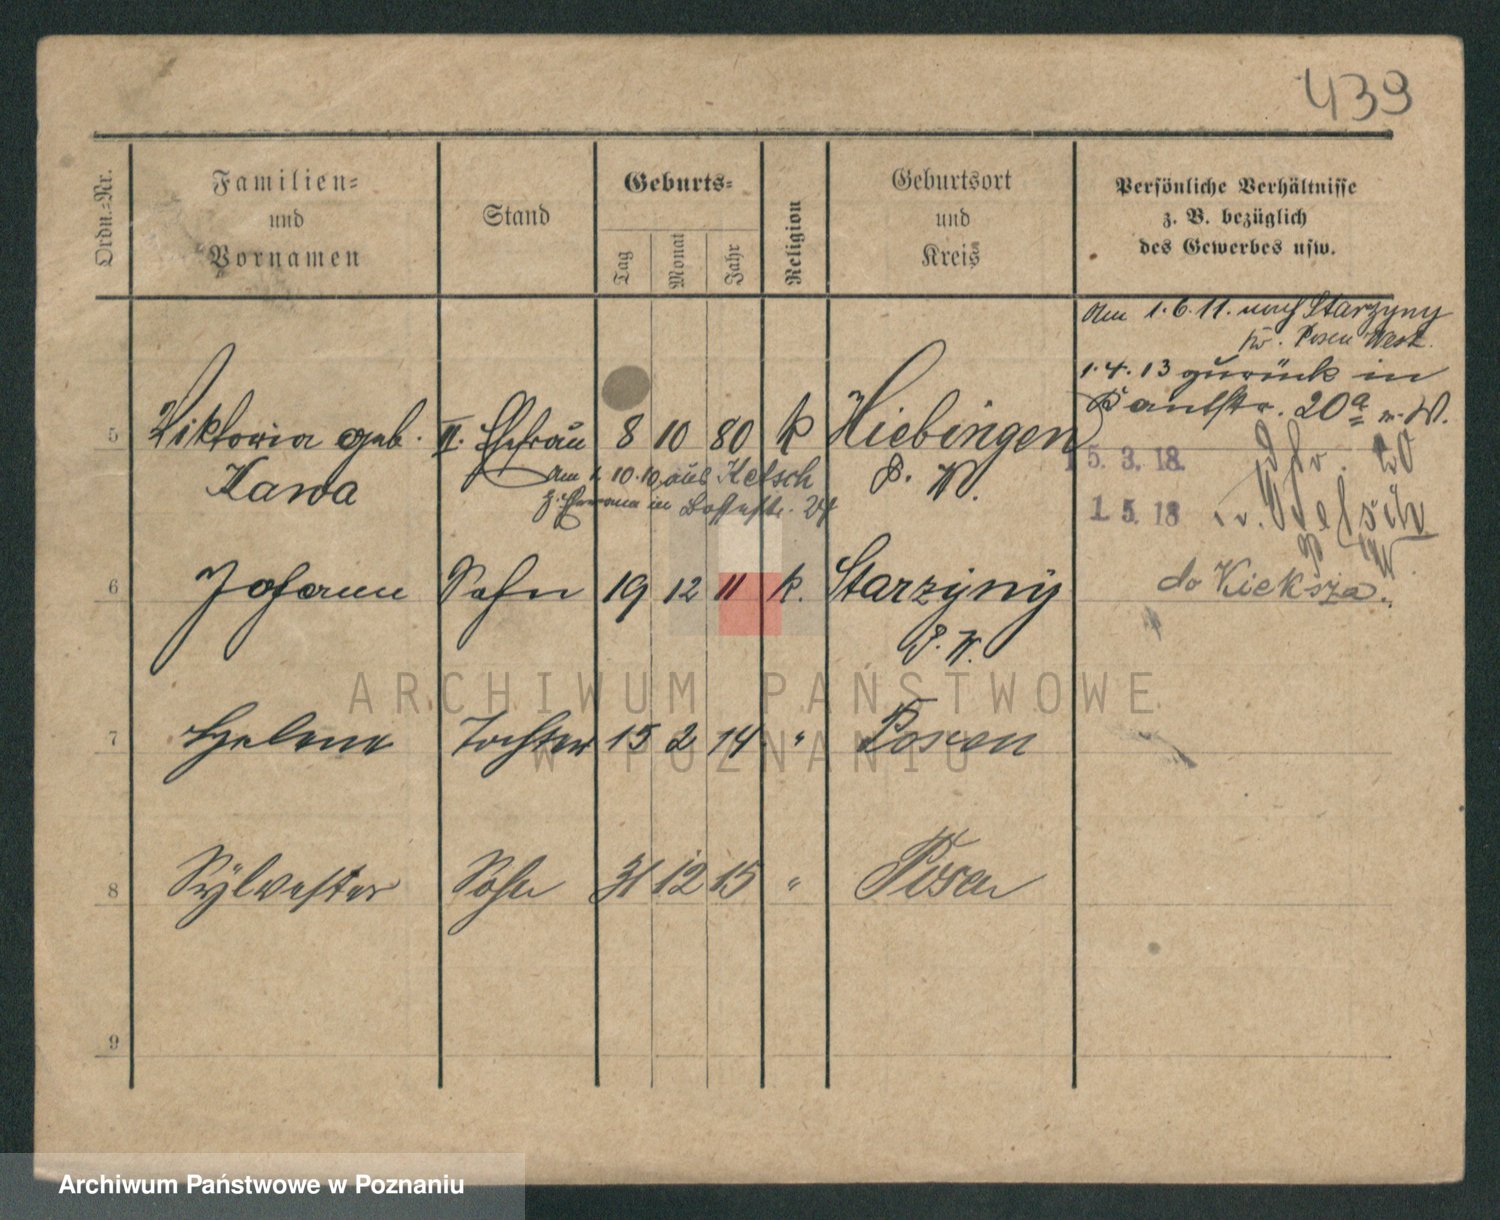 439
Ordn.-Nr.
Familien-
und
Vornamen
Stand
Geburts-
Tag
Monat
Jahr
Religion
Geburtsort
und
Kreis
Persönliche Verhältnisse
z. B. bezüglich
des Gewerbes usw.
Am 1.6.11. nach Starzyny
Kr. Posen West.
1.4.13 zurück in
20a
5 Viktoria geb. II. Ehefrau 8 10 80 k Hiebingen
Kawa
P. W.
Am 1. 10. 10 aus Ketsch
z. in
5. 3. 18.
20
1 5. 18
6 Johann Sohn 19 12 11 k. Starzyny
P. W.
do Kieksza.
7 Helene Tochter 15 2 14 " Posen
8 Sylvester Sohn 31 12 15 " Posen
9
ARCHIWUM PAŃSTWOWE
W POZNANIU
Archiwum Państwowe w Poznaniu